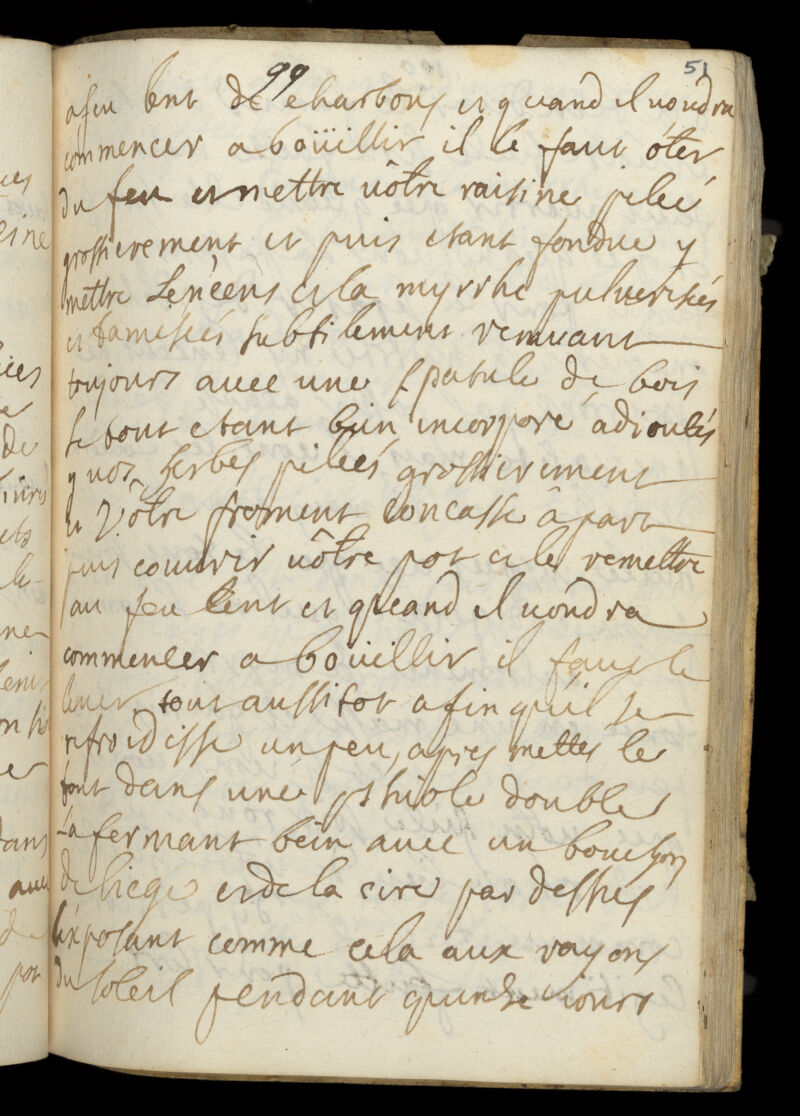 99
51
a feu lent de charbons et quand il uoudra
commencer a boüillir il le faut ôter
du feu et mettre uôtre raisine pileé
grossierement et puis etant fondue y
mettre Lenćens et la myrrhe pulverisés
et tamisés subtilement remuant
toujours auec une spatule de bois
le tout etant bien incorporé adioutés
y uos herbes pileés grossierement
et Vôtre froment concasse â part
puis couurir uôtre pot et le remettre
au feu lent et queand il uoudra
commencer a boüillir il faut le
leuer tout aussitot afin qu'il se
refroidisse un peu, apres mettes le
tout dans une phiole double
La fermant bein auec un bouchon
de liege et de la cire par dessus
l'exposant comme cela aux rayons
du soleil pendant quinze iours
ues
esine
ies
de
ets
le
ne
enir
on
er
dans
auec
de
pot